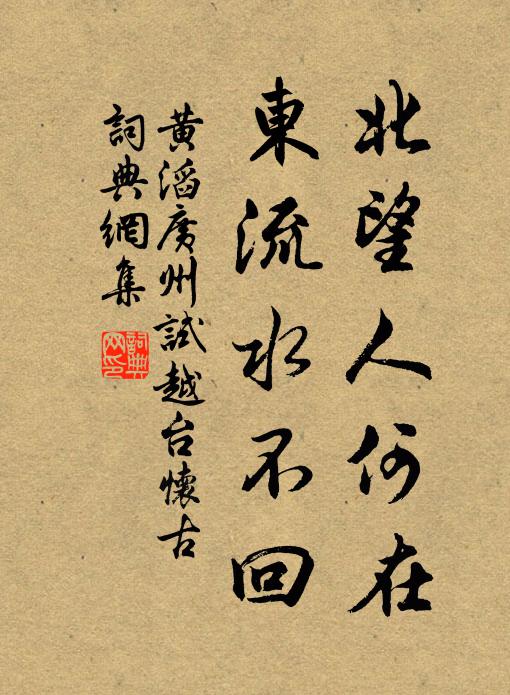 北望人何在
東流水不回
黃滔廣州試越台懷古
詞典網集
詞典
网印